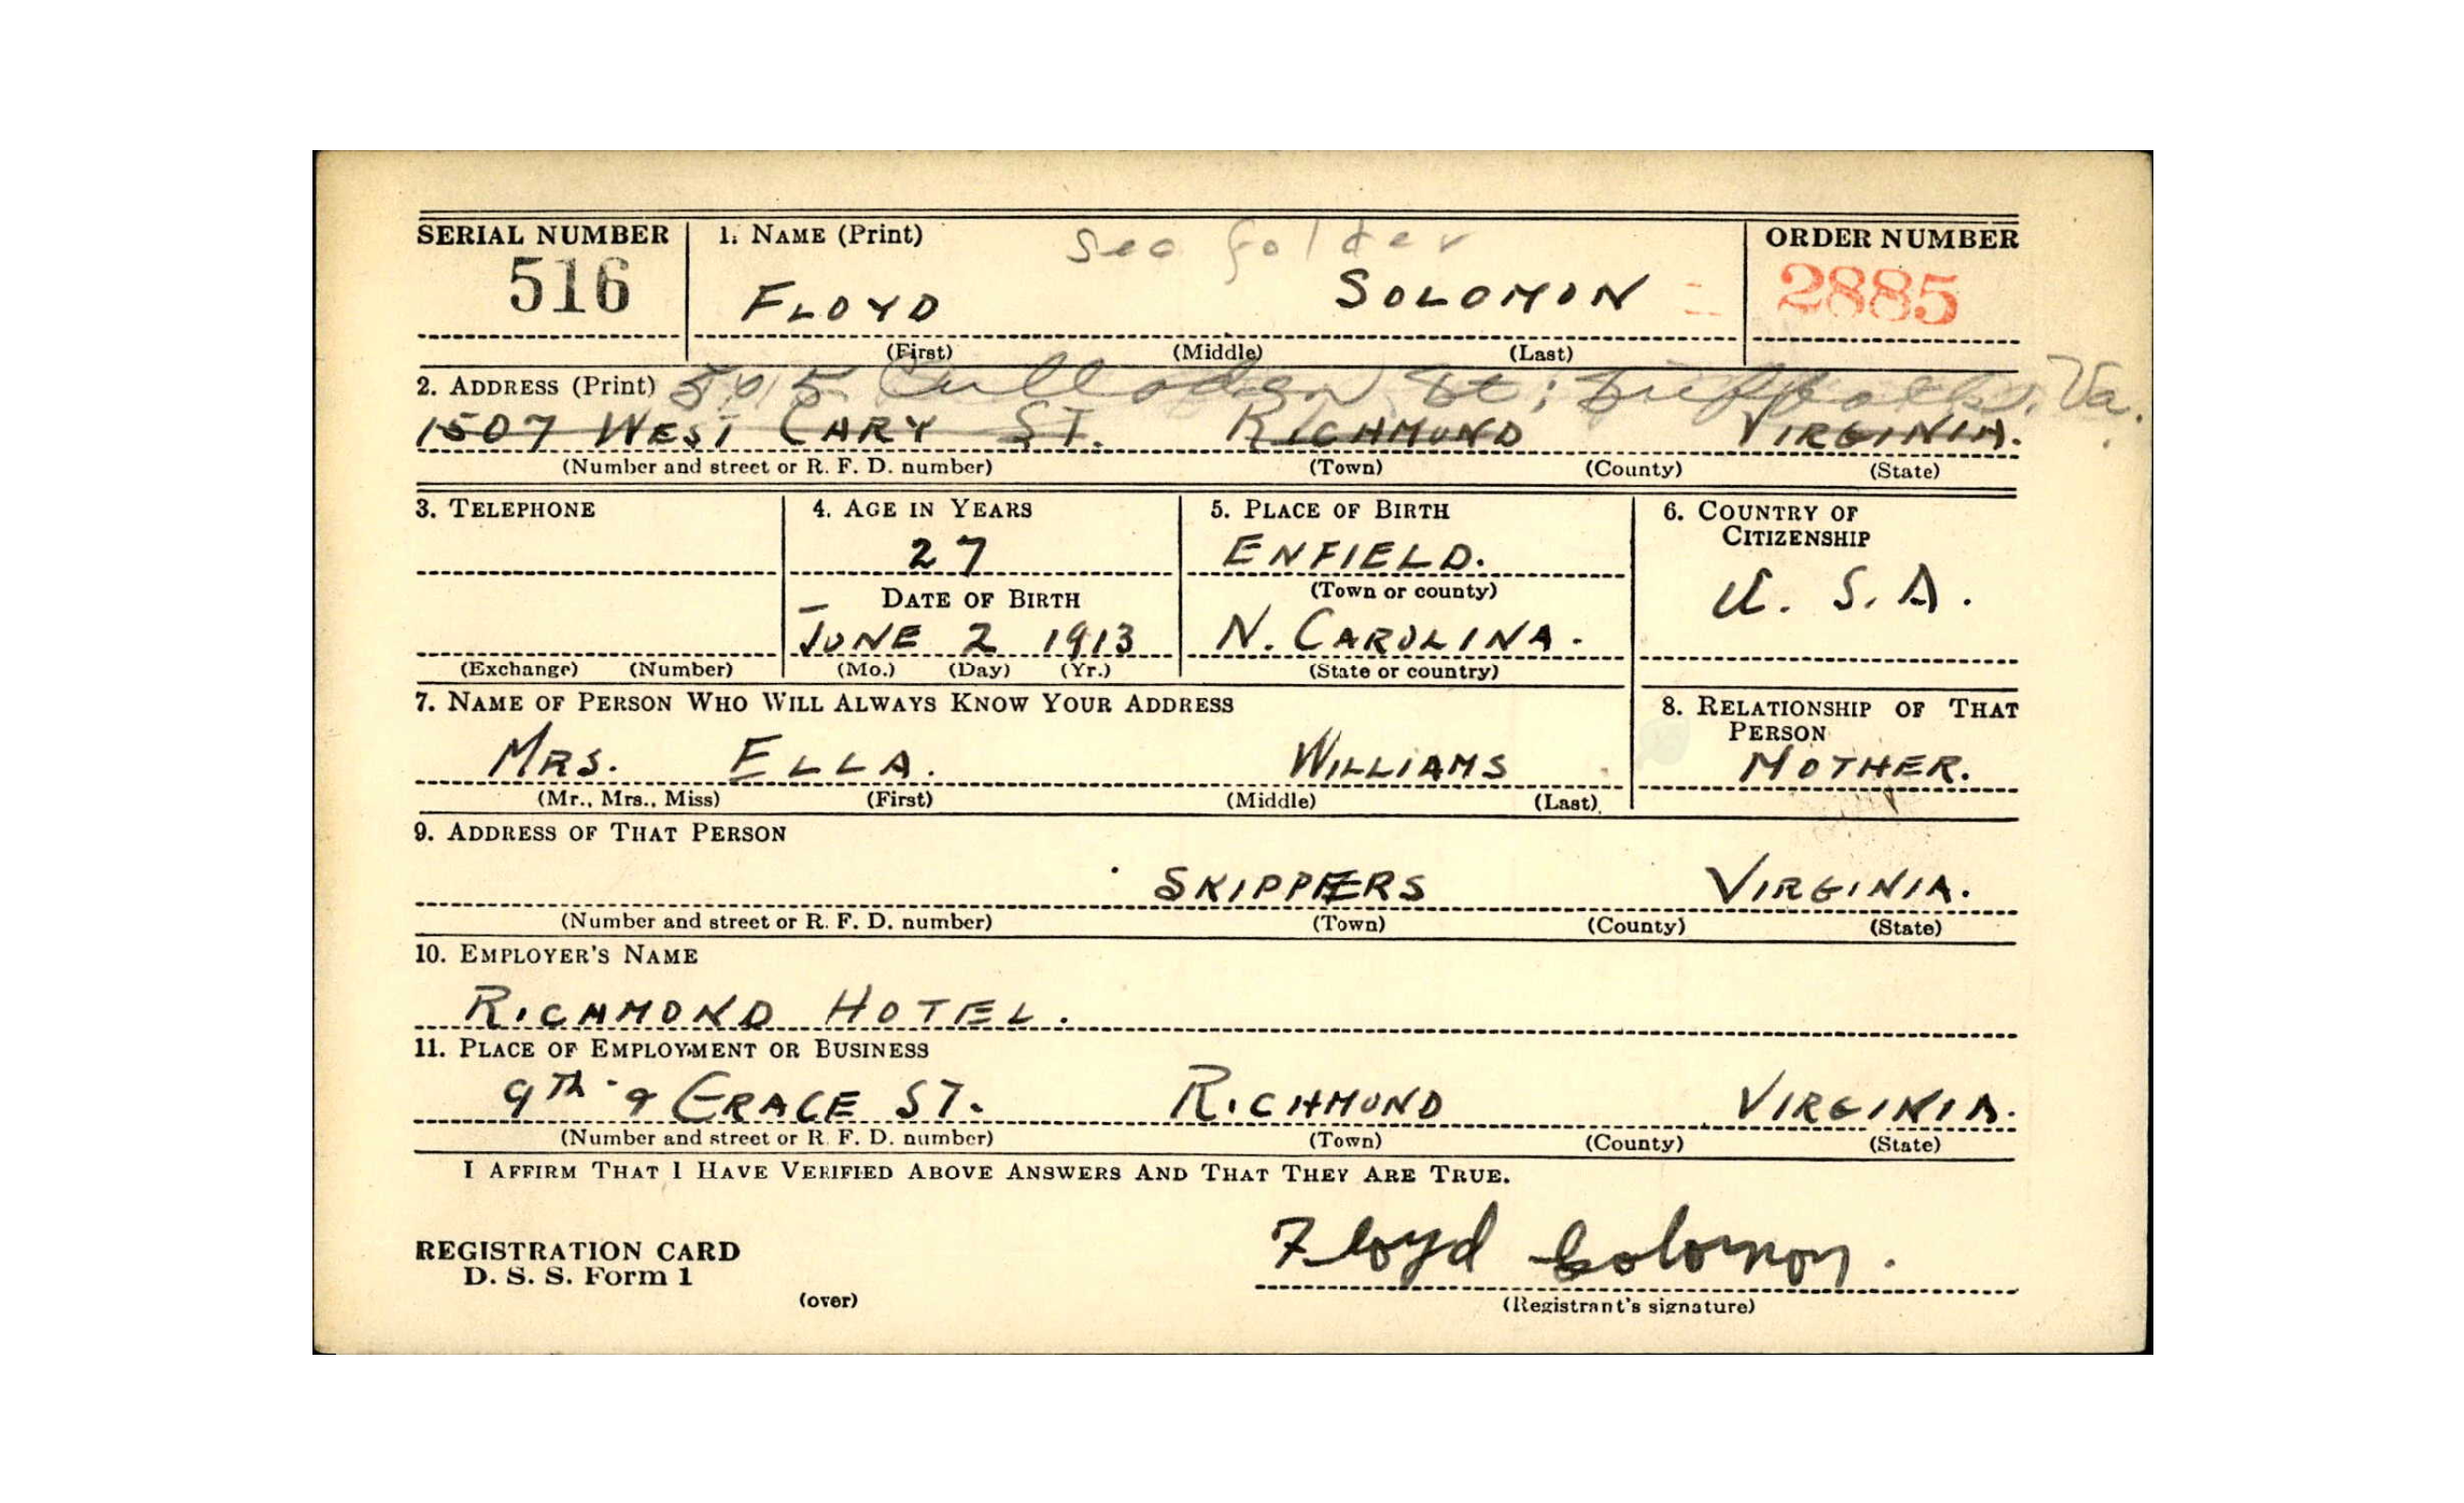 SERIAL NUMBER 1. NAME (Print) See folder ORDER NUMBER
516 FLOYD SOLOMON 2885
(First) (Middle) (Last)
2. ADDRESS (Print) 505 Culloden St; Suffolk, Va.
1507 WEST CARY ST. RICHMOND VIRGINIA.
(Number and street or R. F. D. number) (Town) (County) (State)
3. TELEPHONE 4. AGE IN YEARS 5. PLACE OF BIRTH 6. COUNTRY OF
CITIZENSHIP
27 ENFIELD.
(Town or county)
DATE OF BIRTH U. S. A.
JUNE 2 1913 N. CAROLINA.
(Exchange) (Number) (Mo.) (Day) (Yr.) (State or country)
7. NAME OF PERSON WHO WILL ALWAYS KNOW YOUR ADDRESS 8. RELATIONSHIP OF THAT
PERSON
MRS. ELLA. WILLIAMS MOTHER.
(Mr., Mrs., Miss) (First) (Middle) (Last)
9. ADDRESS OF THAT PERSON
SKIPPERS VIRGINIA.
(Number and street or R. F. D. number) (Town) (County) (State)
10. EMPLOYER'S NAME
RICHMOND HOTEL.
11. PLACE OF EMPLOYMENT OR BUSINESS
9TH & GRACE ST. RICHMOND VIRGINIA.
(Number and street or R. F. D. number) (Town) (County) (State)
I AFFIRM THAT I HAVE VERIFIED ABOVE ANSWERS AND THAT THEY ARE TRUE.
REGISTRATION CARD Floyd Solomon.
D. S. S. Form 1
(over) (Registrant's signature)